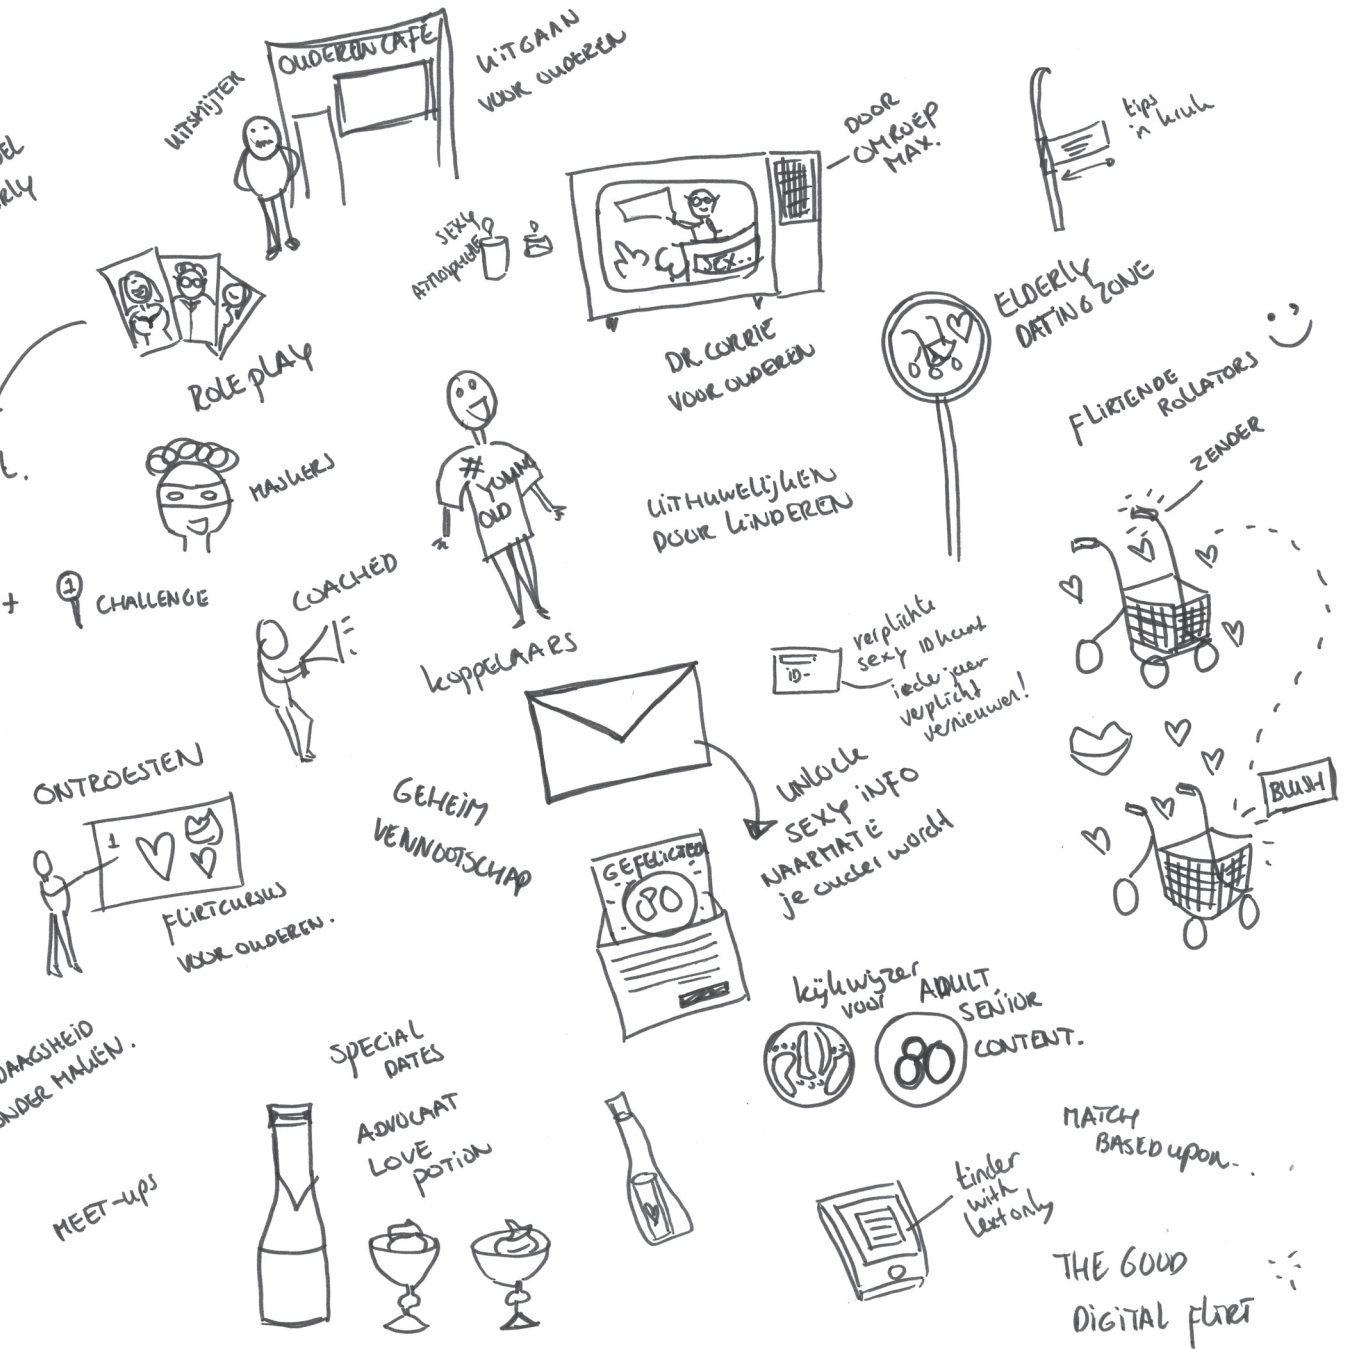 OUDEREN CAFÉ
UITSMIJTER
UITGAAN
VOOR OUDEREN
DOOR
OMROEP
MAX.
tips
in kruk
EL
RLY
SEXY
ATMOSPHERE
SEX...
DR. CORRIE
VOOR OUDEREN
ELDERLY
DATING ZONE
ROLE PLAY
FLIRTENDE
ROLLATORS
ZENDER
MASKERS
# YOUNG
OLD
UITHUWELIJKEN
DOOR KINDEREN
+
1
CHALLENGE
COACHED
KOPPELAARS
ID-
verplichte
sexy ID kaart
ieder jaar
verplicht
vernieuwen!
ONTROESTEN
1
FLIRTCURSUS
VOOR OUDEREN.
GEHEIM
VENNOOTSCHAP
UNLOCK
SEXY INFO
NAARMATE
je ouder wordt
GEFELICITEERD
80
BLUSH
kijkwijzer
voor
ADULT
SENIOR
CONTENT.
80
DAAGSHEID
ONDER MAKEN.
SPECIAL
DATES
ADVOCAAT
LOVE
POTION
MEET-UPS
tinder
with
text only
MATCH
BASED UPON...
THE GOOD
DIGITAL FLIRT